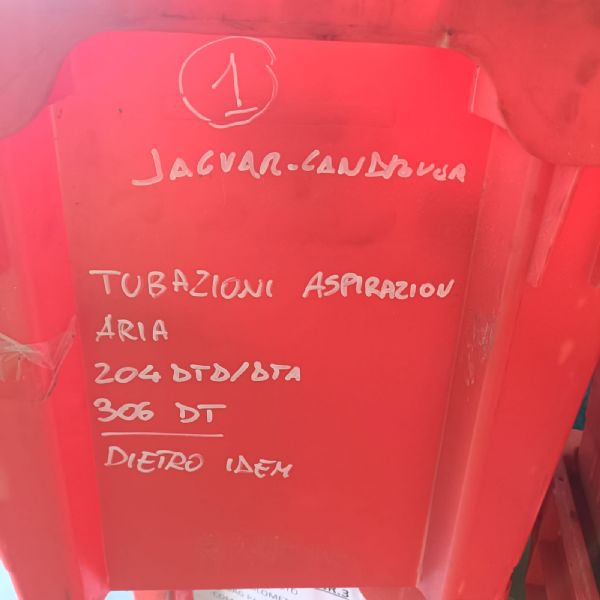 1
JAGUAR-LANDROVER
TUBAZIONI ASPIRAZION
ARIA
204 DTD/DTA
306 DT
DIETRO IDEM
R.3